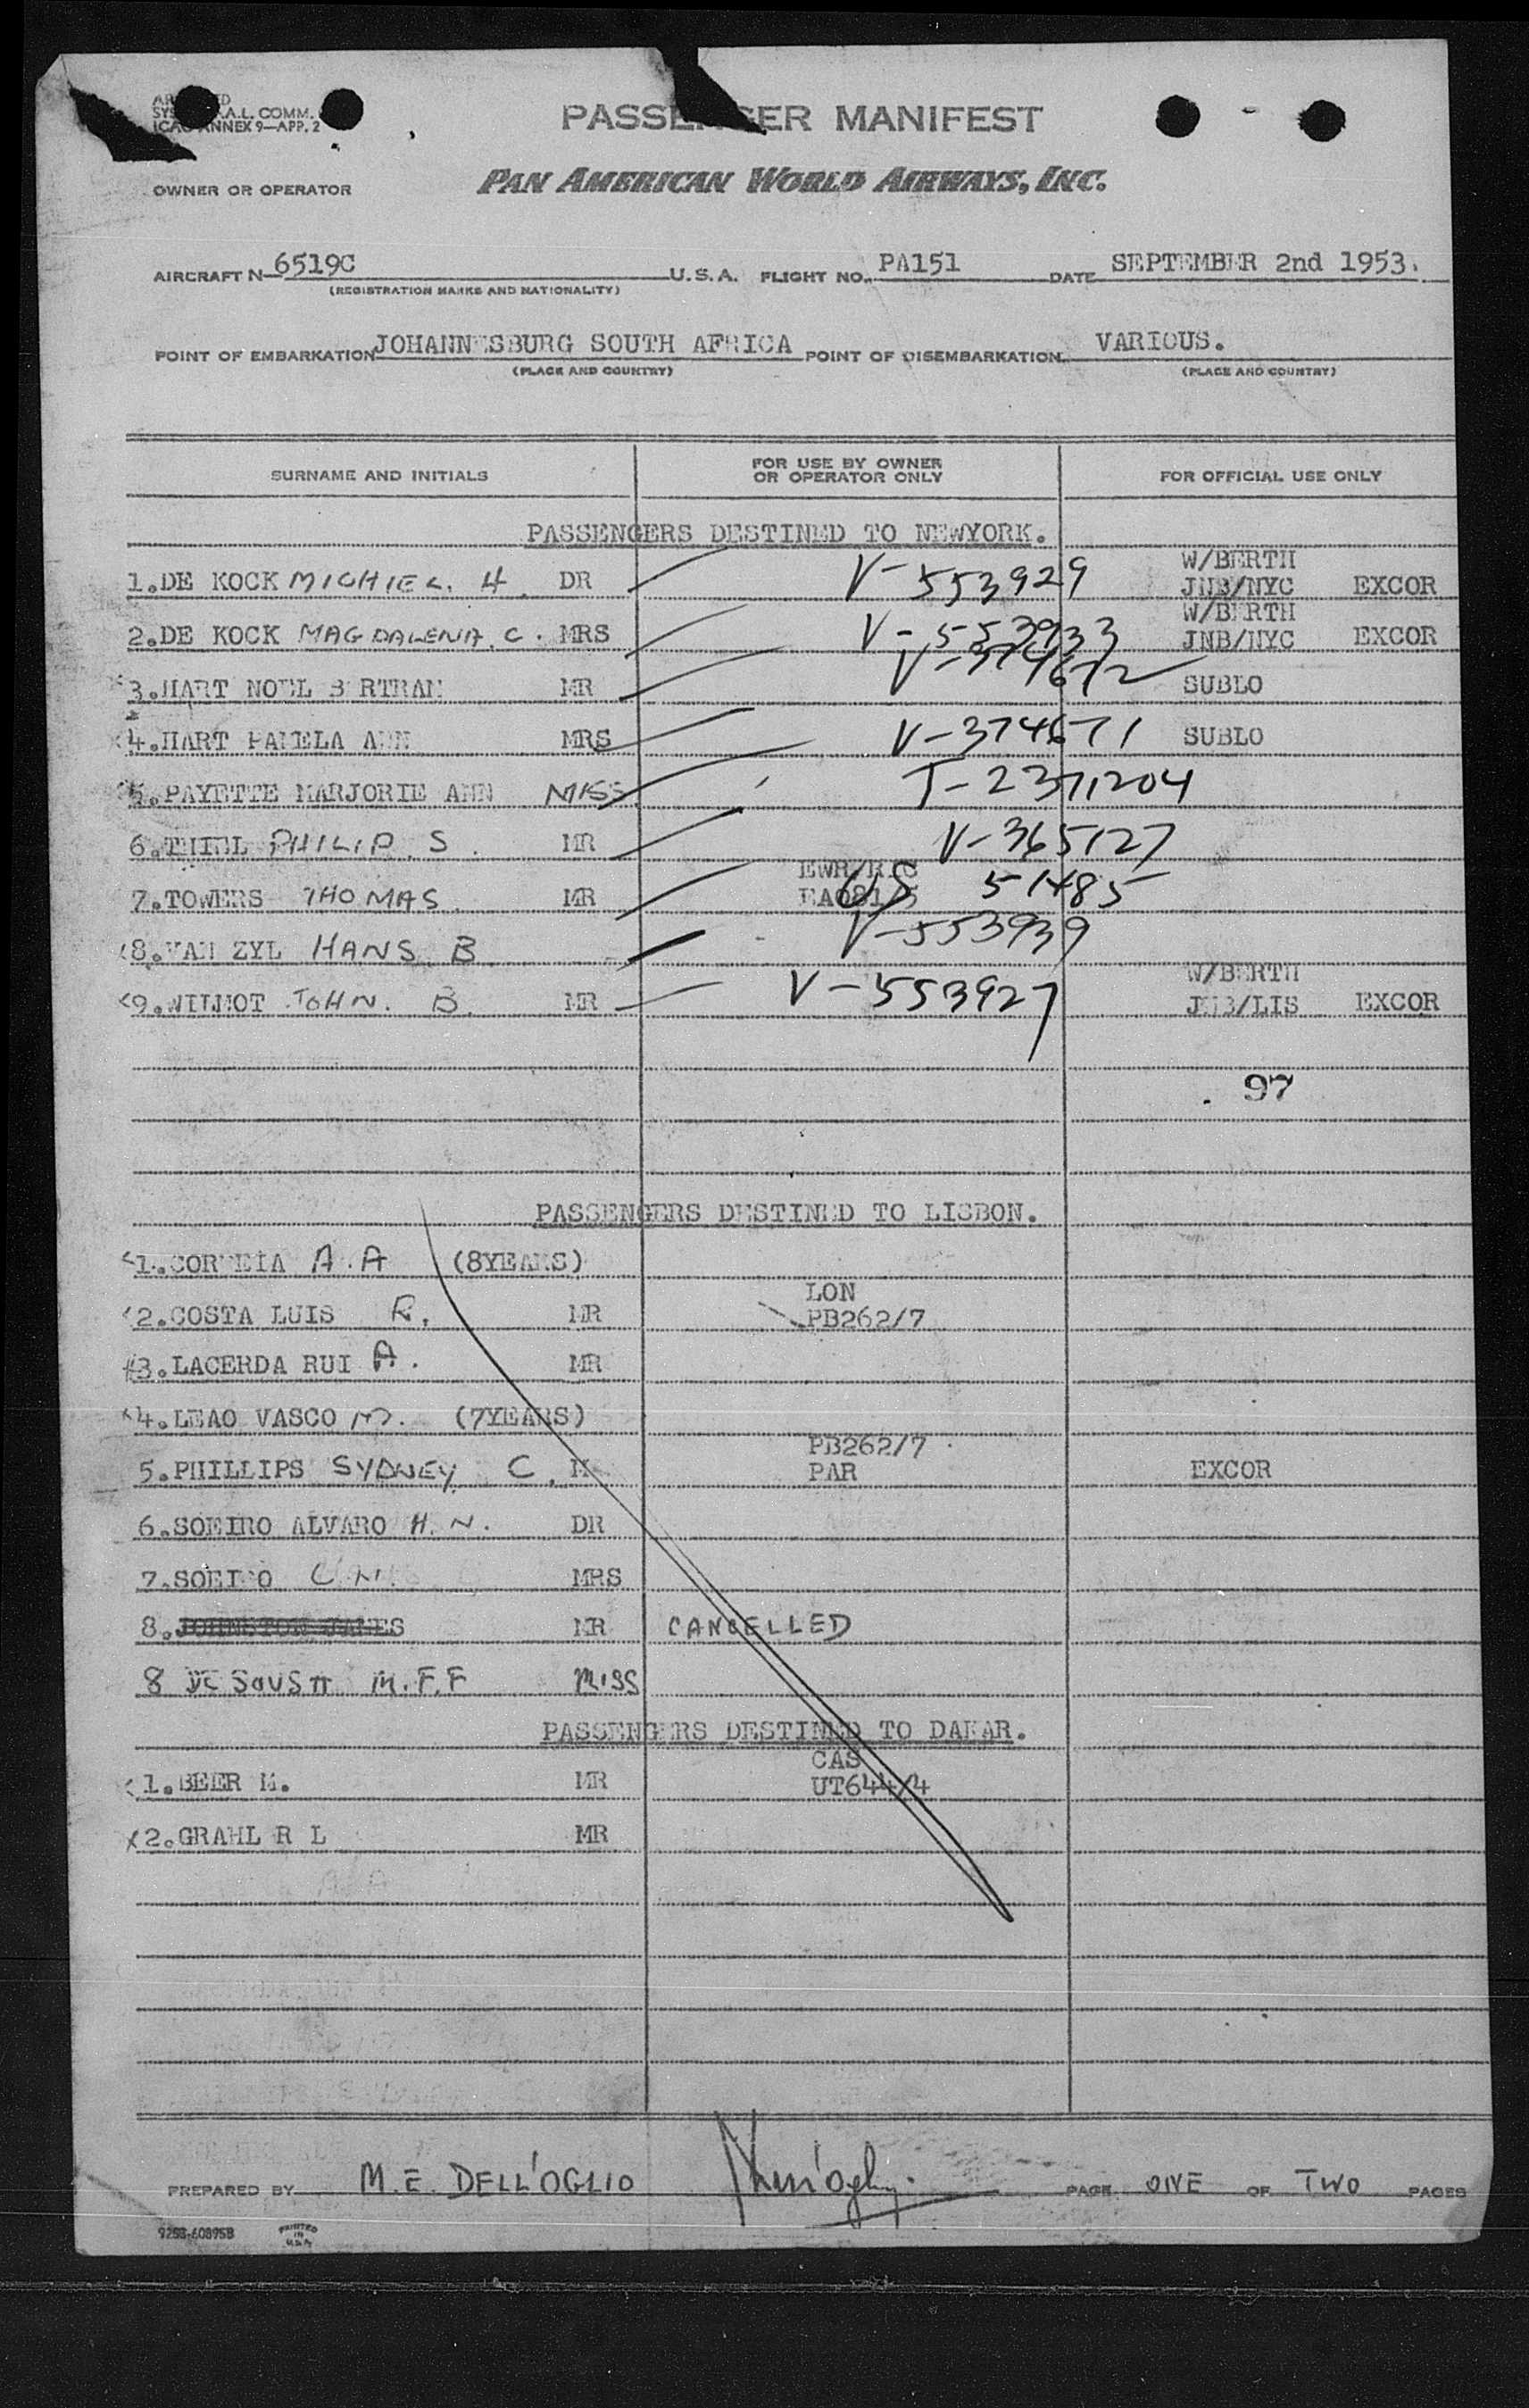 SYS P.A.L. COMM.
ICAO ANNEX 9—APP. 2
PASSENGER MANIFEST
OWNER OR OPERATOR PAN AMERICAN WORLD AIRWAYS, INC.
AIRCRAFT N 6519C U.S.A. FLIGHT NO. PA151 DATE SEPTEMBER 2nd 1953.
(REGISTRATION MARKS AND NATIONALITY)
POINT OF EMBARKATION JOHANNESBURG SOUTH AFRICA POINT OF DISEMBARKATION VARIOUS.
(PLACE AND COUNTRY) (PLACE AND COUNTRY)
SURNAME AND INITIALS FOR USE BY OWNER OR OPERATOR ONLY FOR OFFICIAL USE ONLY
PASSENGERS DESTINED TO NEWYORK.
W/BERTH
1.DE KOCK MICHIEL. H. DR V-553929 JNB/NYC EXCOR
W/BERTH
2.DE KOCK MAGDALENA. C. MRS V-553933 JNB/NYC EXCOR
3.HART NOEL BERTRAM MR V-374672 SUBLO
4.HART PAMELA ANN MRS V-374671 SUBLO
5.PAYETTE MARJORIE ANN MISS T-2371204
6.THIEL PHILIP. S. MR V-365127
EWR/RIC
7.TOWERS THOMAS. MR EA081/5 US 51485
8.VAN ZYL HANS B V-553939
W/BERTH
9.WILMOT JOHN. B. MR V-553927 JNB/LIS EXCOR
97
PASSENGERS DESTINED TO LISBON.
1.CORREIA A.A (8YEARS)
LON
2.COSTA LUIS R. MR PB262/7
3.LACERDA RUI A. MR
4.LEAO VASCO M. (7YEARS)
PB262/7
5.PHILLIPS SYDNEY C. PAR EXCOR
6.SOEIRO ALVARO H. N. DR
7.SOEIRO MRS
8.JOHNSTON JAMES MR CANCELLED
8 DE SOUSA M.F.F MISS
PASSENGERS DESTINED TO DAKAR.
CAS
1.BEER M. MR UT644/4
2.GRAHL R L MR
PREPARED BY M.E. DELL'OGLIO PAGE ONE OF TWO PAGES
9253-60895B PRINTED IN U.S.A.